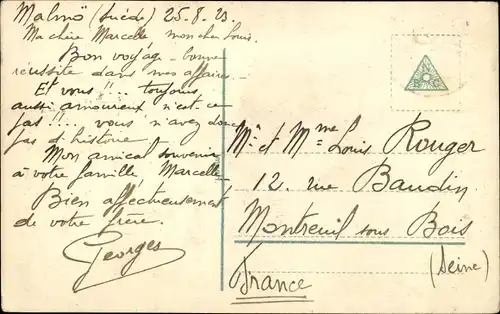 Malmö (Suède) 25.8.23.
Ma chère Marcelle mon cher Louis.
Bon voyage _ bonne
réussite dans mes affaires._
Et vous!!... toujours
aussi amoureux n'est ce
pas!!... vous n'avez donc
pas d'histoire
Mon amical souvenir
à votre famille Marcelle_
Bien affectueusement
de votre frère.
Georges
Mr et Mme Louis Rouger
12. rue Baudin
Montreuil sous Bois
(Seine)
France